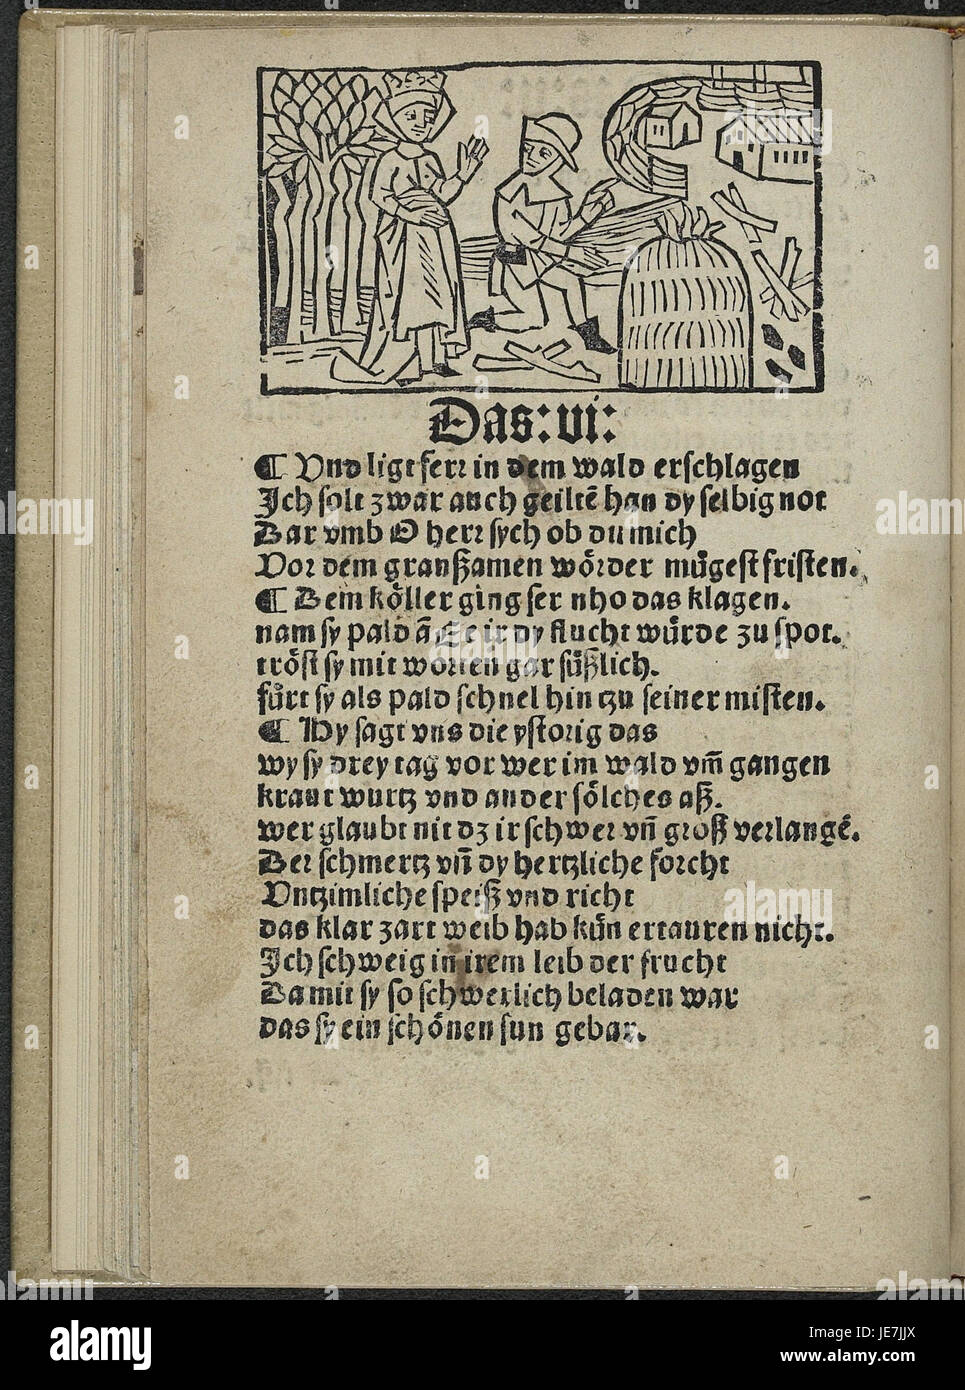 Das: vi:
¶ Vnd ligt ferr in dem wald erschlagen
Jch solt zwar auch geiltē han dy selbig not
Dar vmb O herr sych ob du mich
Vor dem graußamen mörder mügest fristen.
¶ Dem köller ging ser nho das klagen.
nam sy pald ir dy flucht würde zu spot.
tröst sy mit worten gar süßlich.
fürt sy als pald schnel hin tzu seiner misten.
¶ Wy sagt vns die ystorig das
wy sy drey tag vor wer im wald vm̄ gangen
kraut wurtz vnd ander sölches aß.
wer glaubt nit dz ir schwer vn̄ groß verlangē.
Der schmertz vn̄ dy hertzliche forcht
Vntzimliche speiß vnd richt
das klar zart weib hab kün ertauren nicht.
Jch schweig in irem leib der frucht
Damit sy so schwerlich beladen war
das sy ein schönen sun gebar.
alamy
Image ID: JE7JJX
www.alamy.com